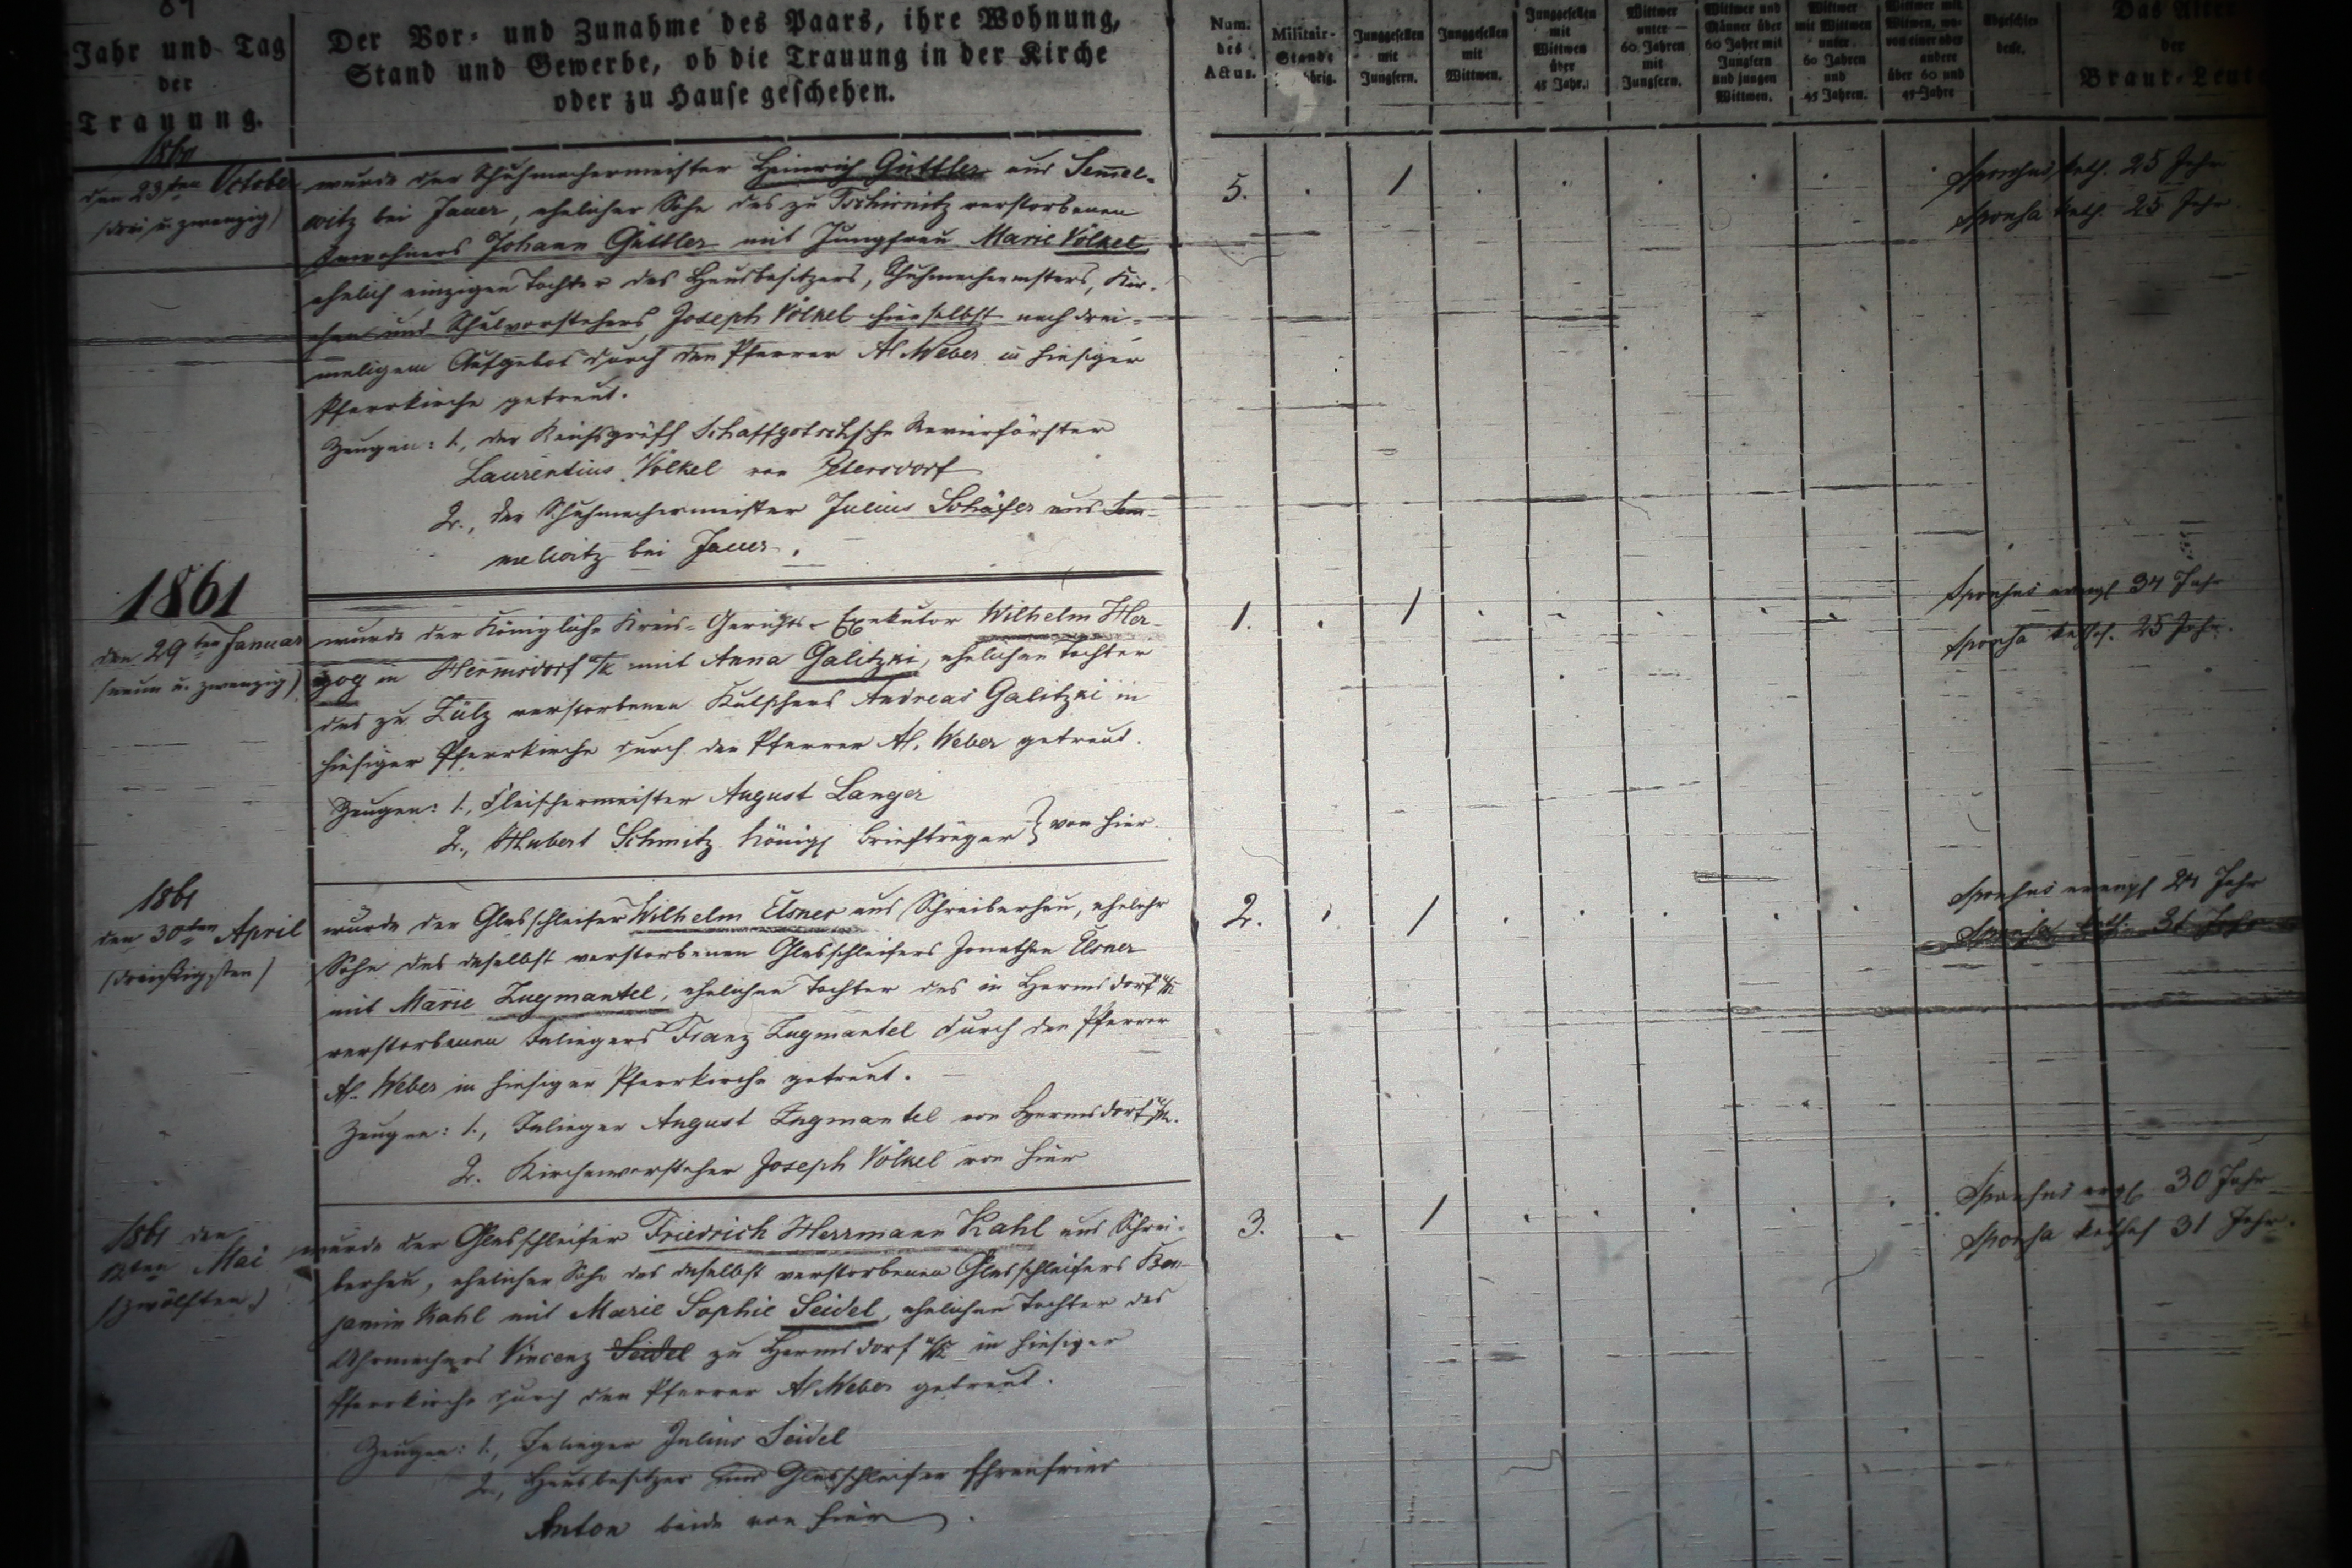 Jahr und Tag
der
Trauung.
Der Vor- und Zunahme des Paars, ihre Wohnung,
Stand und Gewerbe, ob die Trauung in der Kirche
oder zu Hause geschehen.
Num.
des
Actus.
Militair-
Stande
Junggesellen
mit
Jungfern.
Junggesellen
mit
Wittwen.
Junggesellen
mit
Wittwen
über
45 Jahr.
Wittwer
unter
60 Jahren
mit
Jungfern.
Wittwer und
Männer über
60 Jahre mit
Jungfern
und jungen
Wittwen.
Wittwer
mit Wittwen
unter
60 Jahren
und
45 Jahren.
Wittwer mit
über 60 und
45 Jahre
Das Alter
der
Braut-Leut
1860
den 23ten October
(drei u. zwanzig)
wurde der Schuhmachermeister Heinrich Güttler aus Semel-
witz bei Jauer, ehelicher Sohn des zu Tschirnitz verstorbenen
Inwohners Johann Güttler mit Jungfrau Marie Völkel
ehelich einzigen Tochter des Hausbesitzers, Schuhmachermsters, Kir-
chen und Schulvorstehers Joseph Völkel hierselbst nach drei-
maligem Aufgebot durch den Pfarrer Al Weber in hiesiger
Pfarrkirche getraut.
Zeugen: 1., der Reichsgräfl Schaffgotschsche Revierförster
Laurentius Völkel von Petersdorf
2., der Schuhmachermeister Julius Schäfer aus Sem-
melwitz bei Jauer.
5. . 1 . . . . . .
Sponsus kath. 25 Jahr
Sponsa kath. 25 Jahr
1861
den 29ten Januar
(neun u. zwanzig)
wurde der Königliche Kreis-Gerichts-Exekutor Wilhelm Her-
zog in Hermsdorf u/K mit Anna Galitzki, ehelichen Tochter
des zu Zülz verstorbenen Kutschers Andreas Galitzki in
hiesiger Pfarrkirche durch den Pfarrer Al. Weber getraut.
Zeugen: 1., Fleischermeister August Langer
2., Hubert Schmitz königl Briefträger } von hier.
1. . 1 . . . . .
Sponsus evangl 34 Jahr
Sponsa kathol. 25 Jahr.
1861
den 30ten April
(dreißigsten)
wurde der Glasschleifer Wilhelm Elsner aus Schreiberhau, ehelichr
Sohn des daselbst verstorbenen Glasschleifers Jonathan Elsner
mit Marie Zugmantel, ehelichen Tochter des in Hermsdorf u/K
verstorbenen Inliegers Franz Zugmantel durch den Pfarrer
Al. Weber in hiesiger Pfarrkirche getraut.
Zeugen: 1., Inlieger August Zugmantel von Hermsdorf u/K.
2. Kirchenvorsteher Joseph Völkel von hier
2. . 1 . . . . .
Sponsus evangl 24 Jahr
Sponsa kath. 31 Jahr
1861 den
12ten Mai
(zwölften)
wurde der Glasschleifer Friedrich Herrmann Kahl aus Schrei-
berhau, ehelicher Sohn des daselbst verstorbenen Glasschleifers Ben-
jamin Kahl mit Marie Sophie Seidel, ehelichen Tochter des
Uhrmachers Vincenz Seidel zu Hermsdorf u/K in hiesiger
Pfarrkirche durch den Pfarrer Al Weber getraut.
Zeugen: 1., Inlieger Julius Seidel
2., Hausbesitzer und Glasschleifer Ehrenfried
Anton beide von hier.
3. . 1 . . . . .
Sponsus evgl. 30 Jahr
Sponsa kathol 31 Jahr.